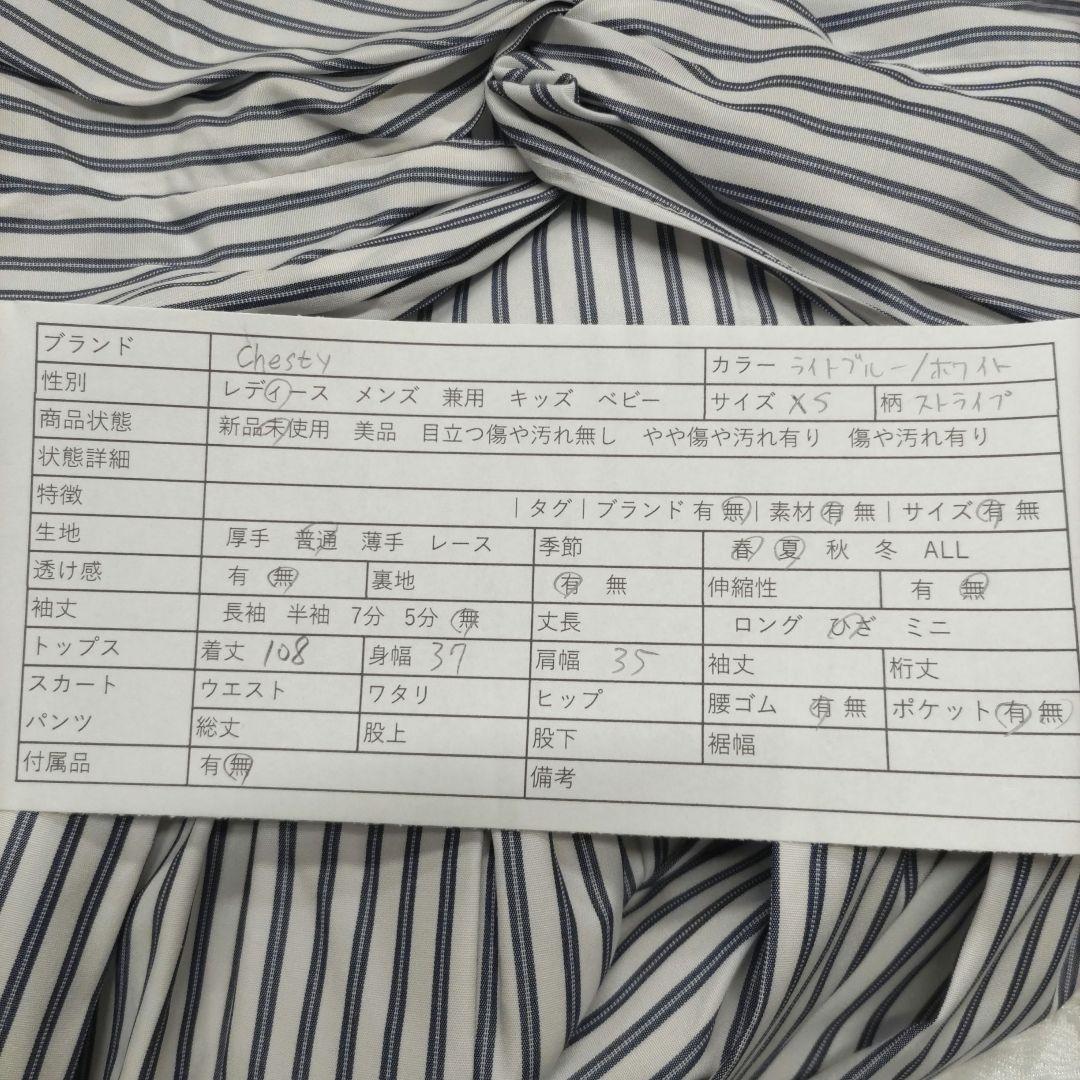 ブランド Chesty カラー ライトブルー/ホワイト
性別 レディース メンズ 兼用 キッズ ベビー サイズ XS 柄 ストライプ
商品状態 新品未使用 美品 目立つ傷や汚れ無し やや傷や汚れ有り 傷や汚れ有り
状態詳細
特徴 |タグ|ブランド 有 無|素材 有 無|サイズ 有 無
生地 厚手 普通 薄手 レース 季節 春 夏 秋 冬 ALL
透け感 有 無 裏地 有 無 伸縮性 有 無
袖丈 長袖 半袖 7分 5分 無 丈長 ロング ひざ ミニ
トップス 着丈 108 身幅 37 肩幅 35 袖丈 裄丈
スカート ウエスト ワタリ ヒップ 腰ゴム 有 無 ポケット 有 無
パンツ 総丈 股上 股下 裾幅
付属品 有 無 備考